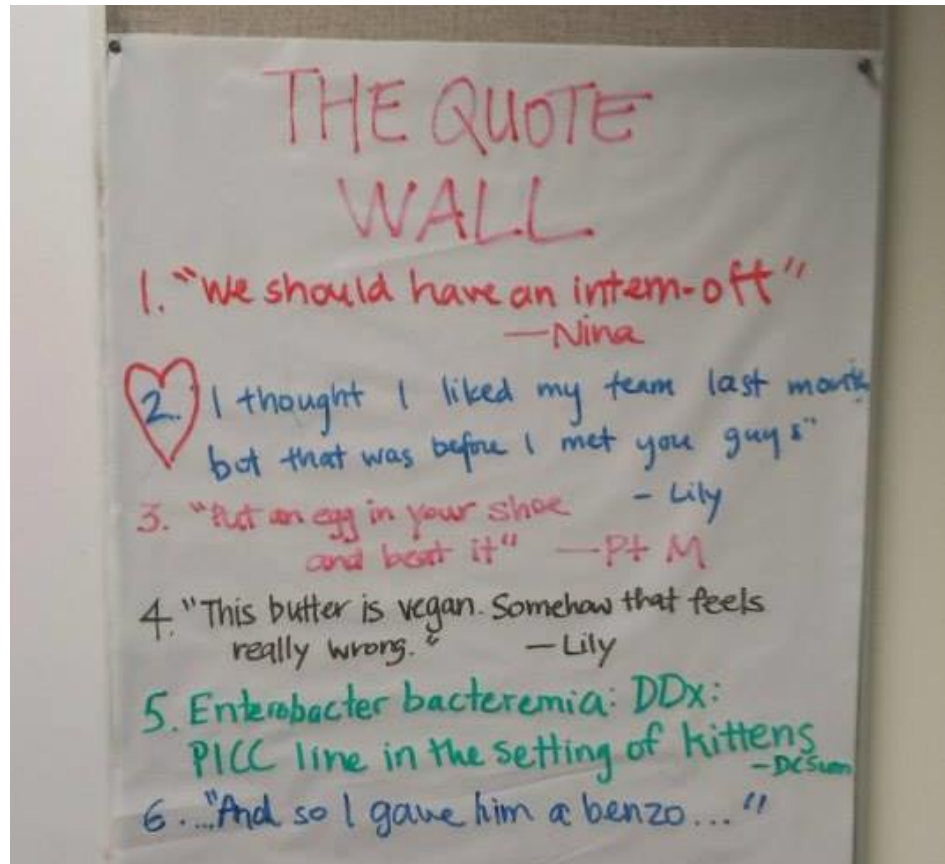 THE QUOTE
WALL
1. "We should have an intern-off"
—Nina
2. I thought I liked my team last month,
but that was before I met you guys"
- Lily
3. "Put an egg in your shoe
and beat it" —Pt M
4. "This butter is vegan. Somehow that feels
really wrong." —Lily
5. Enterobacter bacteremia: DDx:
PICC line in the setting of kittens
6. ..."And so I gave him a benzo..."